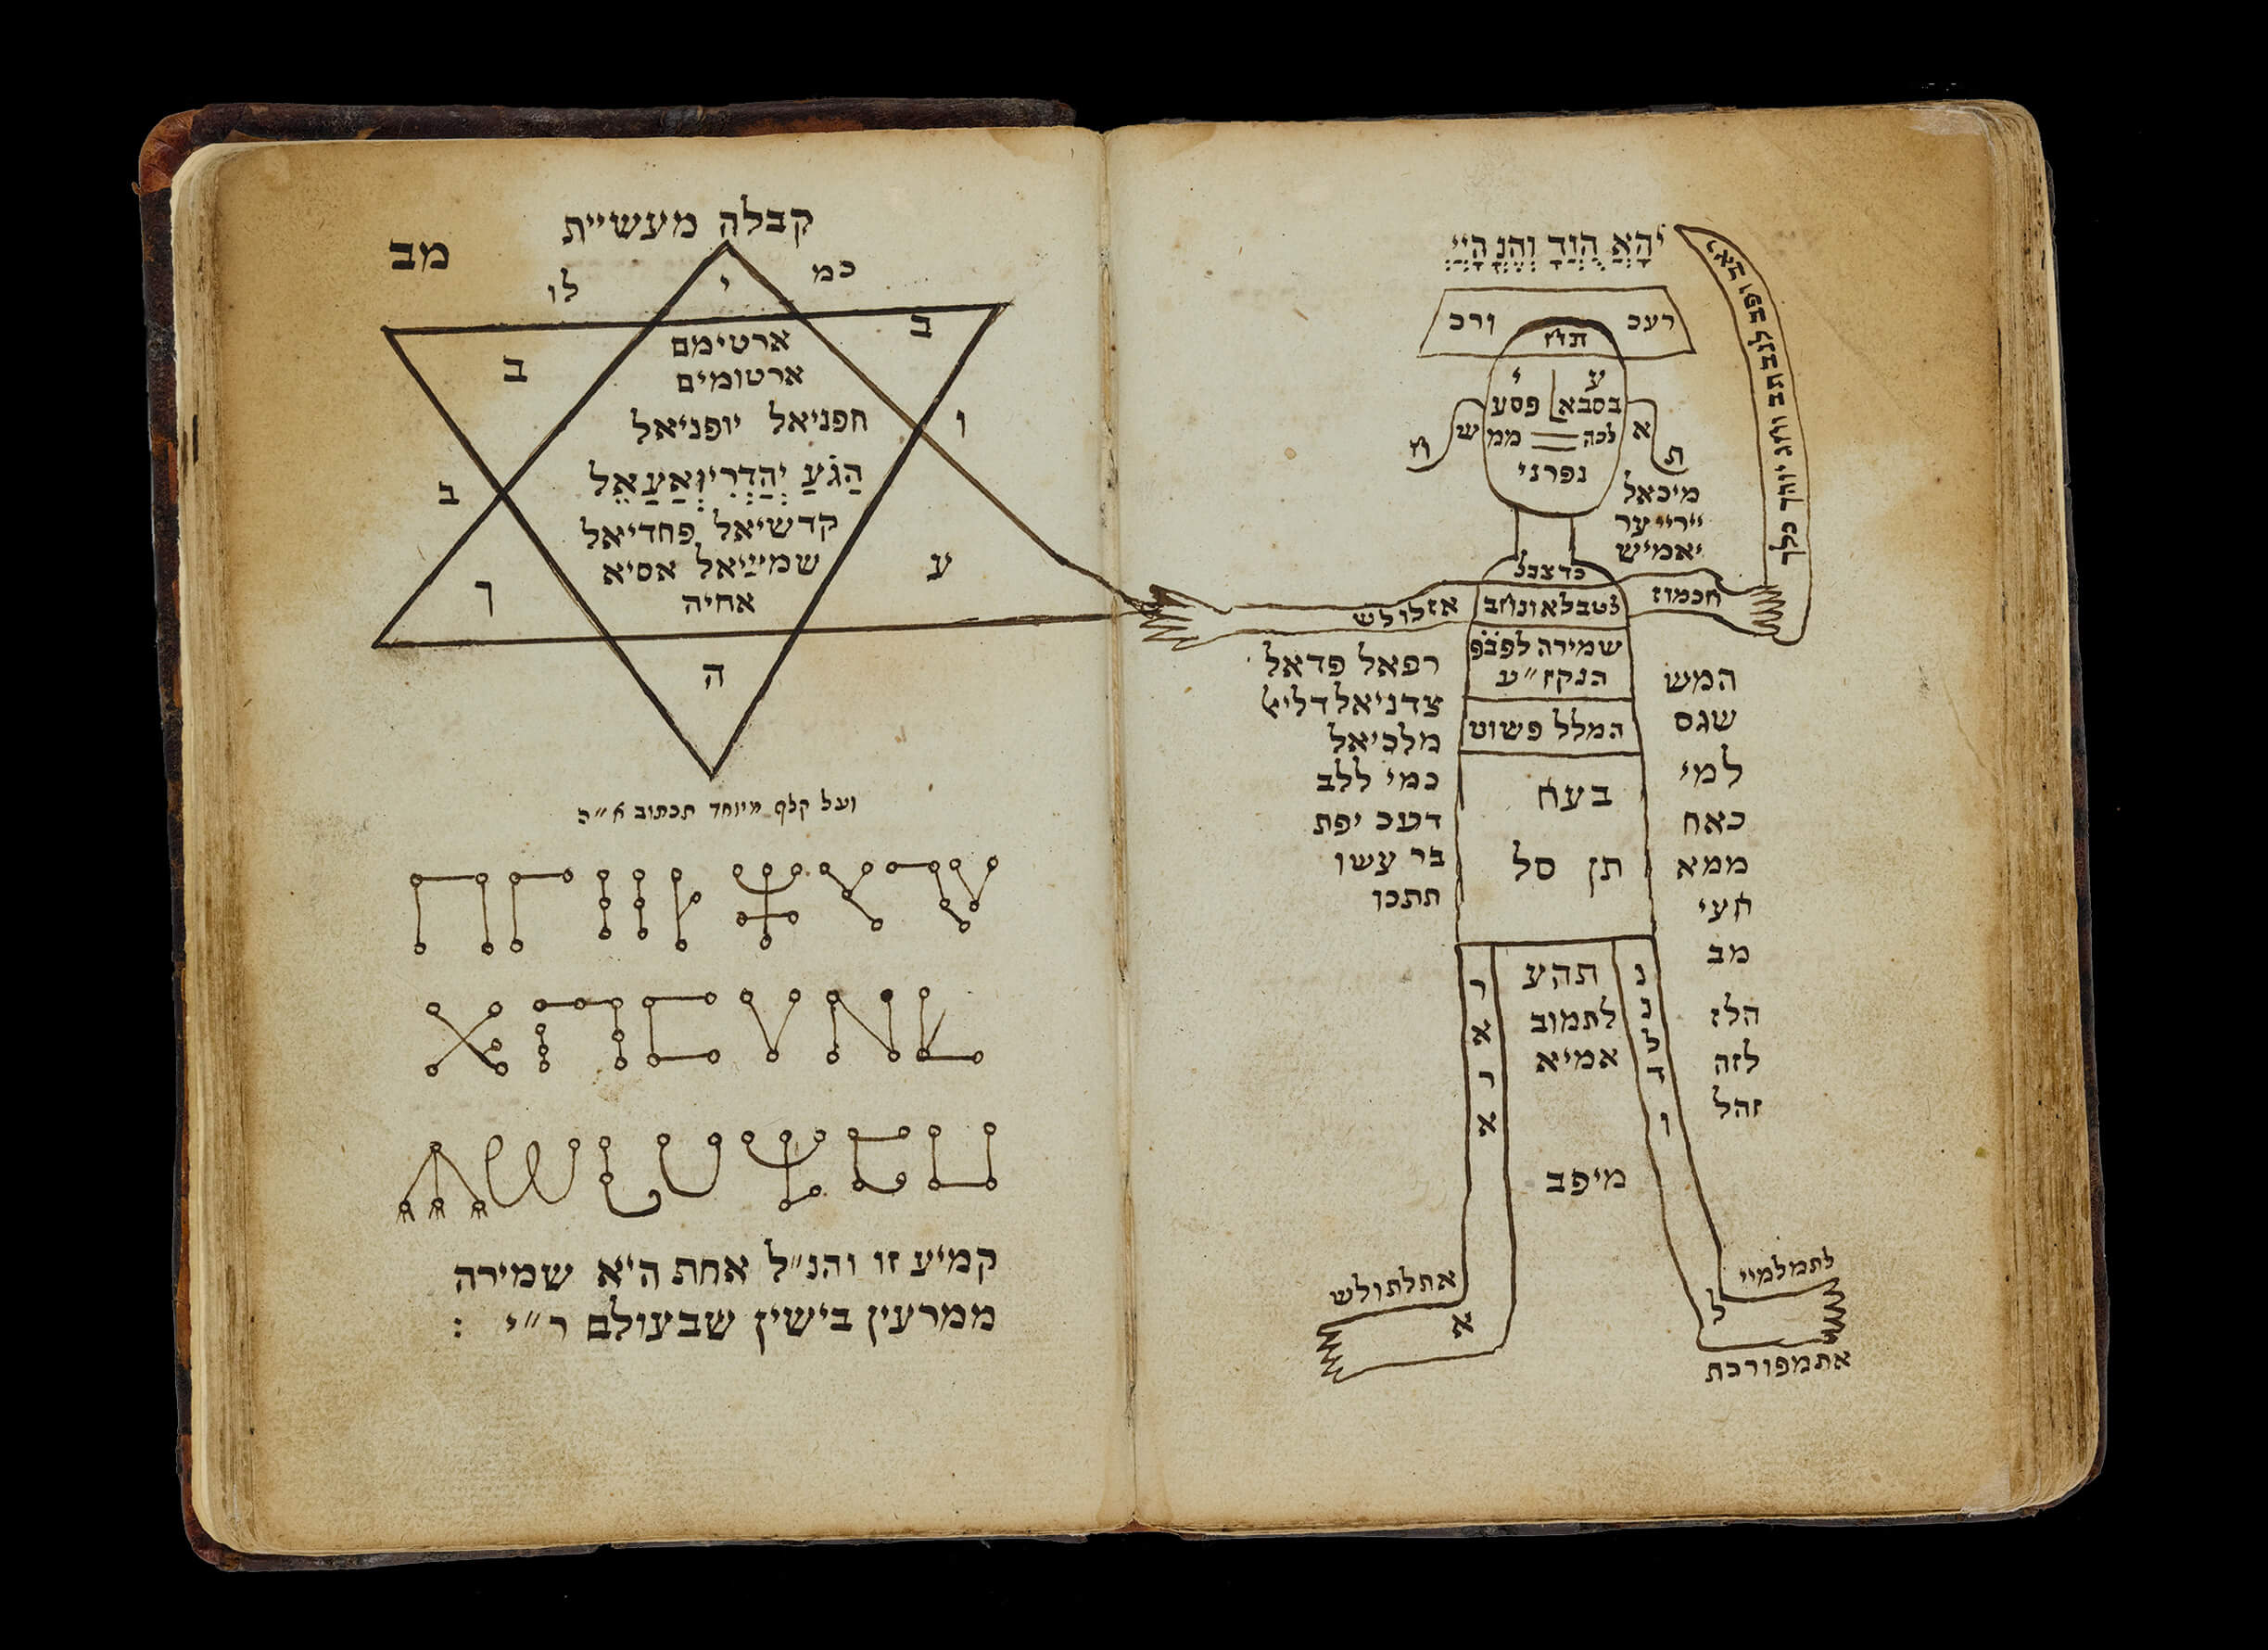 יְהָאֲ הֲוָדָ וְהֶנָ הָיְיֵ
רעכ
ורכ
תוז
ע
י
בסבא
פסע
א
לכה
ממ
ש
ת
ח
נפרני
מיכאל
ייריי ער
יאמיש
כדצבל
חכמוז
נטבלאונחב
אזלולש
שמירה לפבפ
הנקז״ע
המלל פשוט
בעח
תן סל
תהע
לתמוב
אמיא
מיפב
נ
נ
ל
ד
ו
ל
ר
א
ר
א
א
המש
שגס
למי
כאח
ממא
חעי
מב
הלז
לזה
זהל
רפאל פדאל
צדניאל
מלכיאל
כמי ללב
דעכ יפת
בר עשו
תתכן
לתמלמיי
אתמפורכת
אתלתולש
קבלה מעשיית
מב
כמ
לו
י
ב
ב
ו
ב
ע
ך
ה
ארטימם
ארטומים
חפניאל יופניאל
קדשיאל פחדיאל
שמעיאל אסיא
אחיה
ועל קלף מיוחד תכתוב א״ה
קמיע זו והנ״ל אחת היא שמירה
ממרעין בישין שבעולם ר״י :